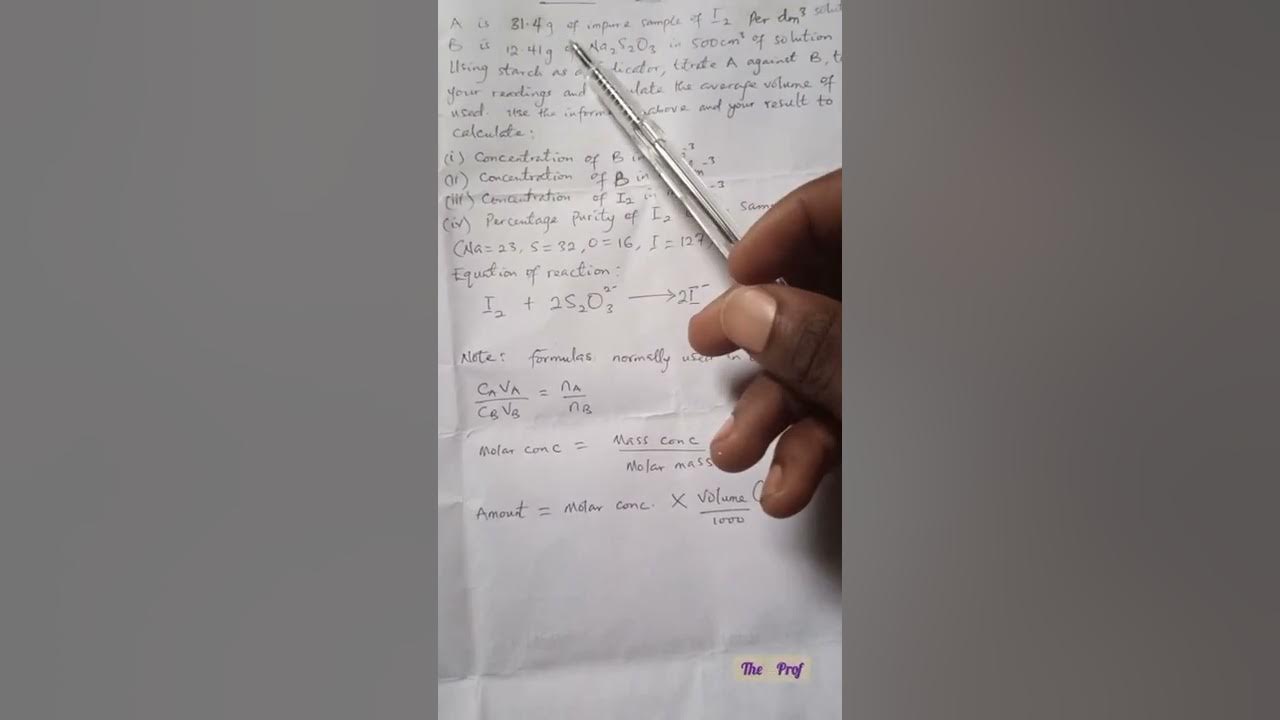 A is 31.4g of impure sample of I₂ Per dm³ solut
B is 12.41g Na₂S₂O₃ in 500cm³ of solution
Using starch as a dicator, titrate A against B, t
your readings and ulate the average volume of
used. Use the inform above and your result to
calculate:
(i) Concentration of B in ⁻³
(ii) Concentration of B in ⁻³
(iii) Concentration of I₂ in ⁻³
(iv) Percentage purity of I₂ sam
(Na=23, S=32, O=16, I=127
Equation of reaction:
I₂ + 2S₂O₃²⁻ ⟶ 2I⁻
Note: formulas normally used in
CAVA/CBVB = nA/nB
Molar conc = Mass conc/Molar mass
Amount = Molar conc. × Volume (/1000
The Prof